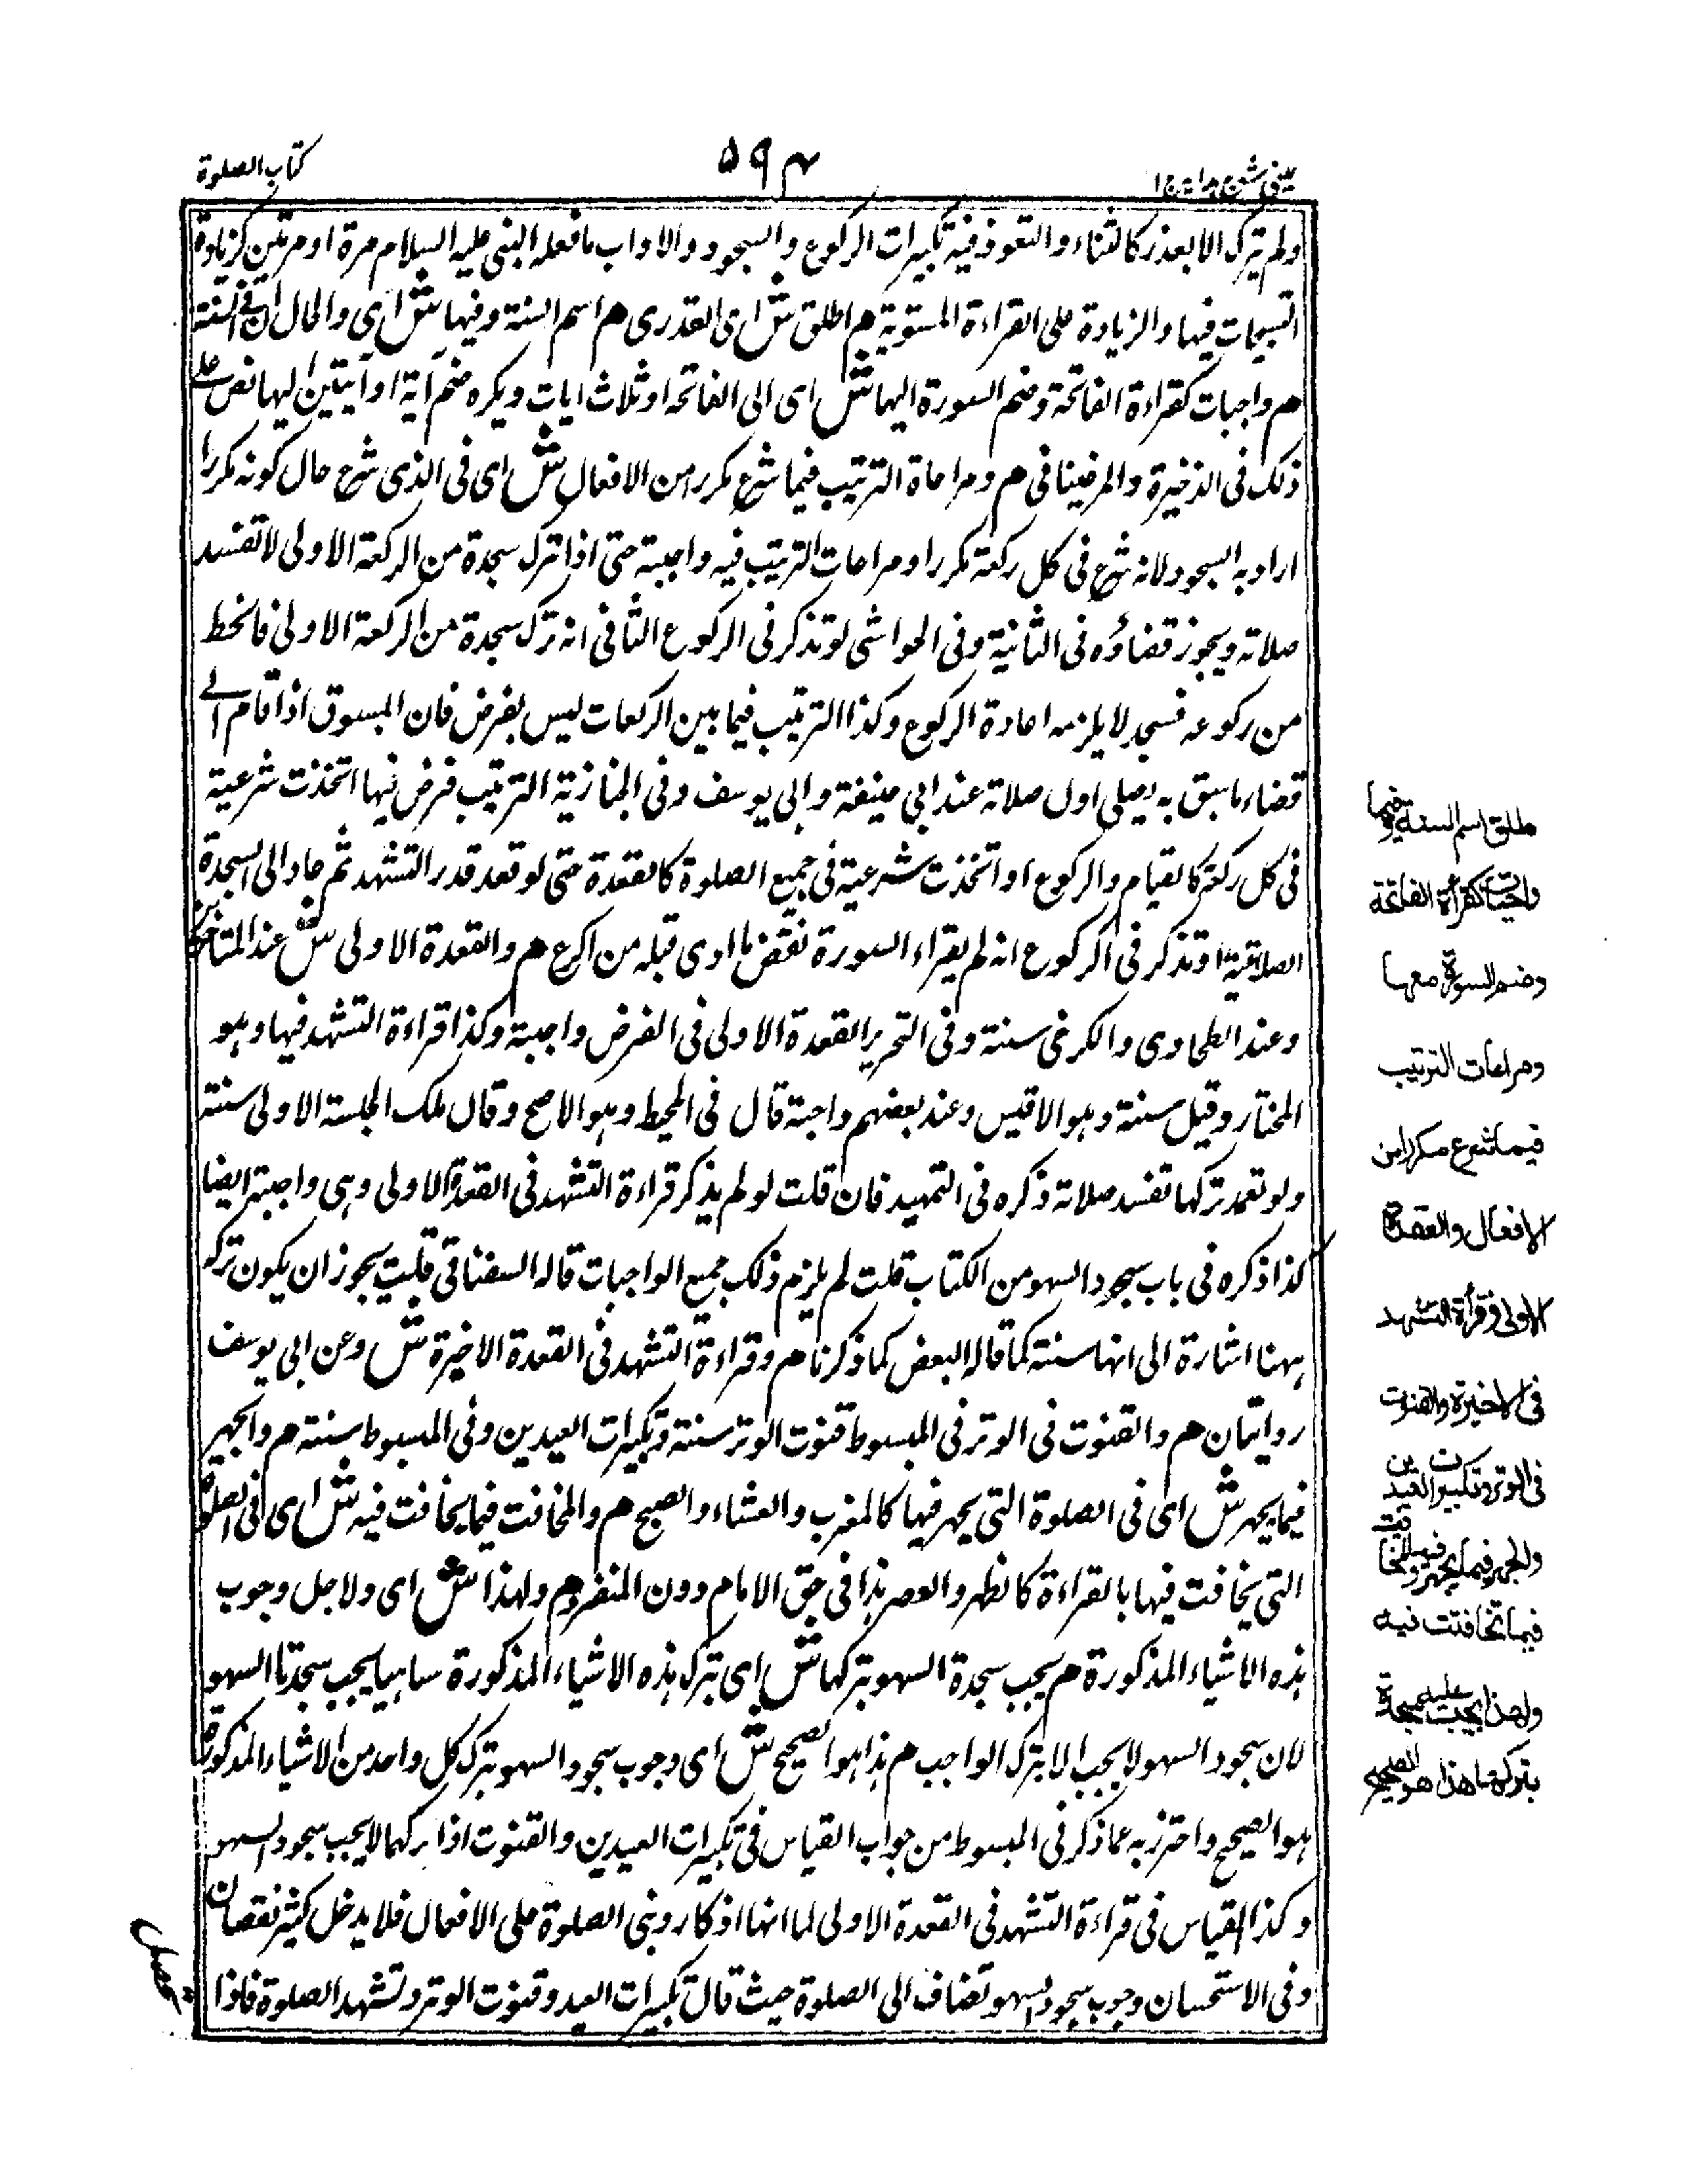 عینی شرح هدایه ج ا
۵۹۴
کتاب الصلوة
ولم یترک الا بعذر کالثناء والتعوذ فیه تکبیرات الرکوع والسجود والاداب ما فعله النبی علیه السلام مرة او مرتین کزیادة
التسبیحات فیها والزیادة علی القراءة المسنونة م اطلق ش ای القدری م اسم السنة وفیها ش ای والحال ان فی السنة
م واجبات کقراءة الفاتحة وضم السورة الیها ش ای الی الفاتحه او ثلاث ایات ویکره ضم آیة او آیتین الیها نص علی
ذلک فی الذخیرة والمرغینانی م ومراعاة الترتیب فیما شرع مکررا من الافعال ش ای فی الذی شرع حال کونه مکررا
اراد به السجود لانه شرع فی کل رکعة مکررا ومراعات الترتیب فیه واجبة حتی اذا ترک سجدة من الرکعة الاولی لا تفسد
صلاته ویجوز قضاؤه فی الثانیة وفی الحواشی لو تذکر فی الرکوع الثانی انه ترک سجدة من الرکعة الاولی فانحط
من رکوعه فسجد لا یلزمه اعادة الرکوع وکذا الترتیب فیما بین الرکعات لیس بفرض فان المسبوق اذا قام الی
قضاء ما سبق به یصلی اول صلاته عند ابی حنیفة وابی یوسف وفی الخبازیة الترتیب فرض فیها اتخذت شرعیة
فی کل رکعة کالقیام والرکوع او اتخذت شرعیة فی جمیع الصلوة کالقعدة حتی لو قعد قدر التشهد ثم عاد الی السجدة
الصلاتیة او تذکر فی الرکوع انه لم یقراء السورة نقض ما ادی قبله من الرکوع م والقعدة الاولی ش عند المتاخرین
وعند الطحاوی والکرخی سنة وفی التحریر القعدة الاولی فی الفرض واجبة وکذا قراءة التشهد فیها وهو
المختار وقیل سنة وهو الاقیس وعند بعضهم واجبة قال فی المحیط وهو الاصح وقال ملک الجلسة الاولی سنة
ولو تعمد ترکها تفسد صلاته ذکره فی التمهید فان قلت لو لم یذکر قراءة التشهد فی القعدة الاولی وهی واجبة ایضا
کذا ذکره فی باب سجود السهو من الکتاب قلت لم یلزم ذلک جمیع الواجبات قاله السغناقی قلت یجوز ان یکون ترکه
ههنا اشارة الی انها سنة کما قاله البعض کما ذکرنا م وقراءة التشهد فی القعدة الاخیرة ش وعن ابی یوسف
روایتان م والقنوت فی الوتر فی المبسوط قنوت الوتر سنة وتکبیرات العیدین وفی المبسوط سنة م والجهر
فیما یجهر ش ای فی الصلوة التی یجهر فیها کالمغرب والعشاء والصبح م والمخافت فیما یخافت فیه ش ای فی الصلوة
التی یخافت فیها بالقراءة کالظهر والعصر هذا فی حق الامام دون المنفرد م ولهذا ش ای ولاجل وجوب
هذه الاشیاء المذکورة م یجب سجدة السهو بترکها ش ای بترک هذه الاشیاء المذکورة ساهیا یجب سجدتا السهو
لان سجود السهو لا یجب الا بترک الواجب م هذا هو الصحیح ش ای وجوب سجود السهو بترک کل واحد من الاشیاء المذکورة
هو الصحیح واحترز به عما ذکر فی المبسوط من جواب القیاس فی تکبیرات العیدین والقنوت اذا ترکهما لا یجب سجود السهو
وکذا القیاس فی قراءة التشهد فی القعدة الاولی لما انها اذکار وبنی الصلوة علی الافعال فلا یدخل کثیر نقصان
وفی الاستحسان وجوب سجود السهو تضاف الی الصلوة حیث قال تکبیرات العید وقنوت الوتر وتشهد الصلوة فاذا
مطلق اسم السنة وفیها
واجبات کقرأة الفاتحة
وضم السورة معها
ومراعات الترتیب
فیما شرع مکررا من
الافعال والقعدة
الاولی وقرأة التشهد
فی الاخیرة والقنوت
فی الوتر وتکبیرات العیدین
والجهر فیما یجهر فیه والمخافتة
فیما تخافتت فیه
ولهذا یجب علیه سجدة
بترکها هذا هو الصحیح